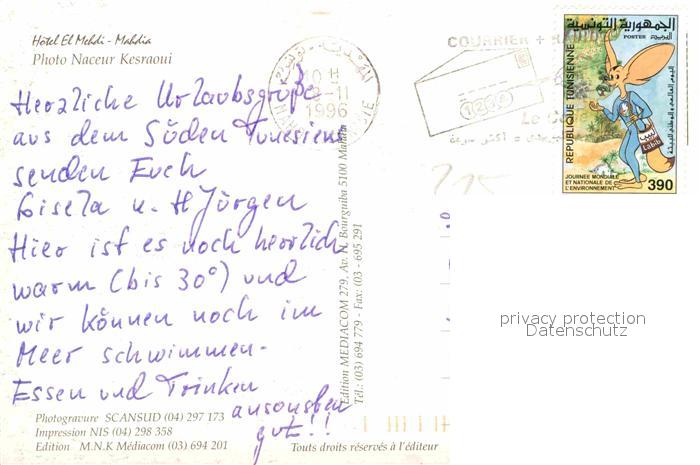 Hôtel El Mehdi - Mahdia
Photo Naceur Kesraoui
Herzliche Urlaubsgrüße
aus dem Süden Tunesiens
senden Euch
Gisela u. HJürgen
Hier ist es noch herrlich
warm (bis 30°) und
wir können noch im
Meer schwimmen.
Essen und Trinken
ansonsten
gut!!
Photogravure SCANSUD (04) 297 173
Impression NIS (04) 298 358
Edition M.N.K Médiacom (03) 694 201
Touts droits réservés à l'éditeur
Edition MEDIACOM 279, Av. H. Bourguiba 5100 Mahdia
Tél.: (03) 694 779 - Fax: (03 - 695 291
10 H
-11
1996
COURRIER +
1230
الجمهورية التونسية
POSTES البريد
REPUBLIQUE TUNISIENNE
لبيب
Labib
JOURNEE MONDIALE
ET NATIONALE DE
L'ENVIRONNEMENT
390
privacy protection
Datenschutz